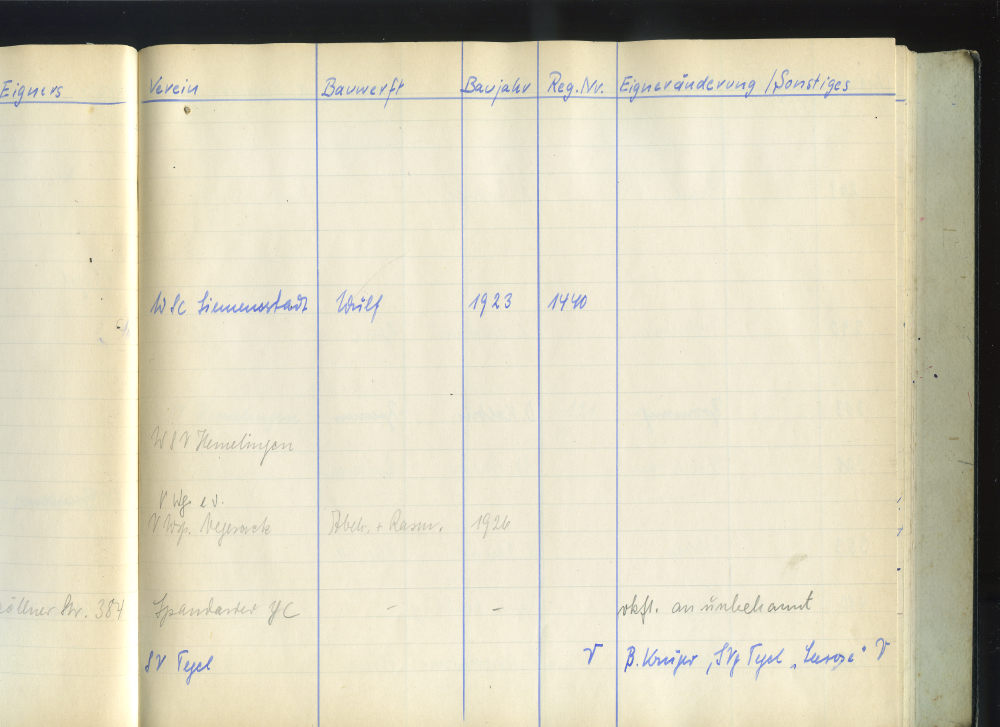 Eigners Verein Bauwerft Baujahr Reg.Nr. Eigneränderung / Sonstiges
WSC Siemensstadt Wulf 1923 1440
WSV Hemelingen
V Wg. e.V.
V Wsp. Vegesack Abek. + Rasm. 1926
öllner Str. 384 Spandauer YC - - vkft. an unbekannt
SV Tegel V B. Krüger, SVg Tegel V